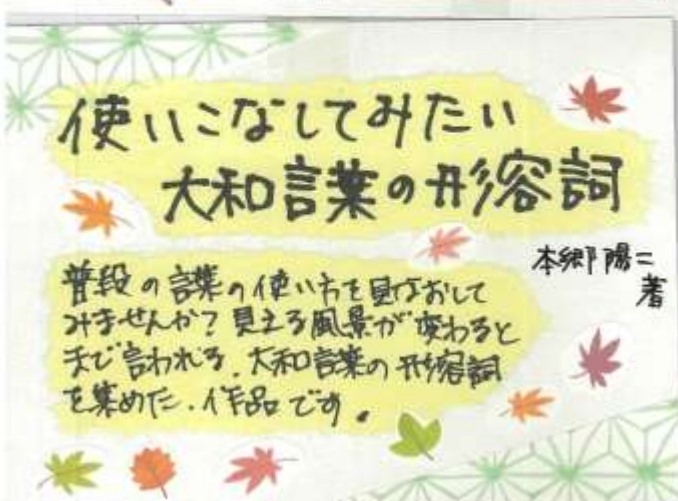 使いこなしてみたい
大和言葉の形容詞
本郷陽二
著
普段の言葉の使い方を見なおして
みませんか？見える風景が変わると
まで言われる、大和言葉の形容詞
を集めた、作品です。